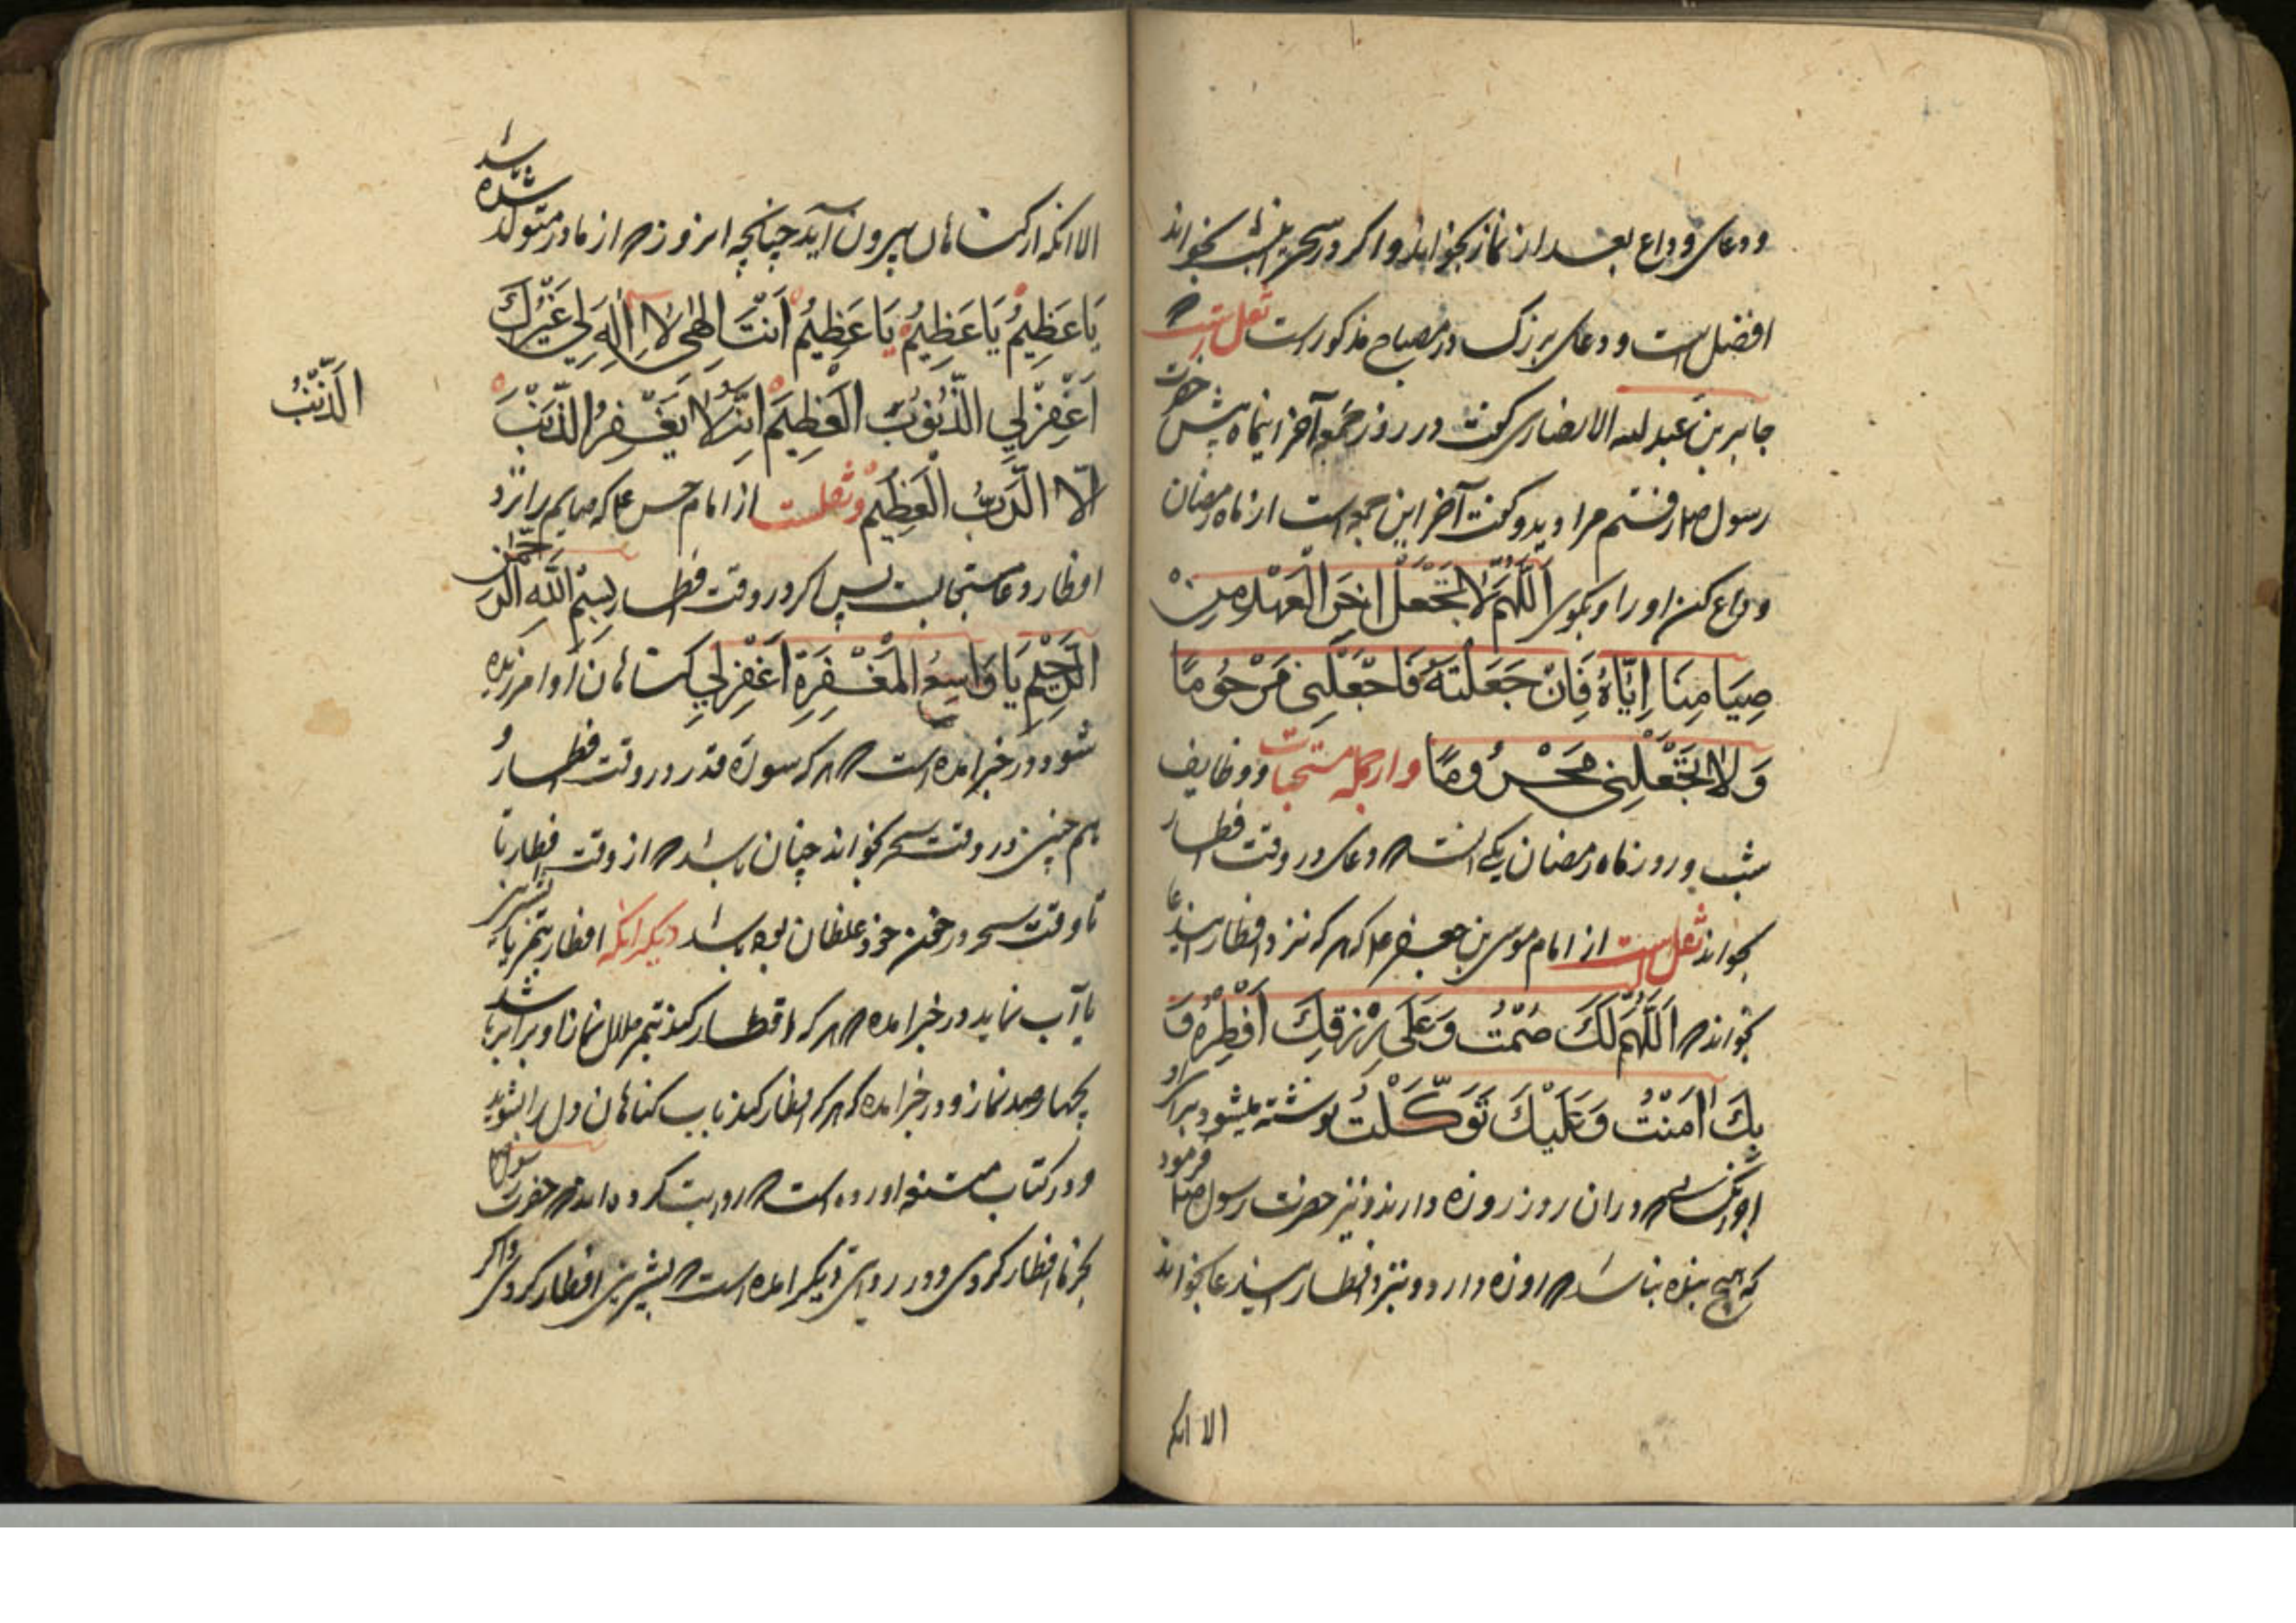 ودعای وداع بعد از نماز بخواند واکر در سحر این شب بخواند
افضل است ودعای بزرک در مصباح مذکور است نقل است که
جابر بن عبد لله الانصاری کفت در روز جمعه آخر اینماه پیش حضرت
رسول صلم رفتم مرا دید وکفت آخر این جمعه است از ماه رمضان
وداع کن او را وبکوی اَللّٰهُمَّ لَا تَجْعَلْ اٰخَرَ الْعَهْدِ مِنْ
صِیَامِنَا اِیَّاهُ فَاِنْ جَعَلْتَهُ فَاجْعَلْنِی مَرْحُومًا
وَلَا تَجْعَلْنِی مَحْرُومًا واز جمله مستحبات ووظایف
شب وروز ماه رمضان یکی انست که دعای در وقت افطار
بخواند نقل است از امام موسی بن جعفر ع که هر که نزد افطار این دعا
بخواند که اَللّٰهُمَّ لَكَ صُمْتُ وَعَلٰی رِزْقِكَ اَفْطَرْهُ وَ
بِكَ اٰمَنْتُ وَعَلَیْكَ تَوَکَّلْتُ نوشته میشود برای او
اجر هر کسی که در ان روز روزه دارند ونیز حضرت رسول صلم فرمود
که هیچ بنده نباشد که روزه دارد ونزد افطار این دعا بخواند
الا انکه
الا انکه از کناهان بیرون آید چنانچه امروز که از مادر متولد شده باشد
یَا عَظِیْمُ یَا عَظِیْمُ یَا عَظِیْمُ اَنْتَ اِلٰهِی لَا اِلٰهَ لِی غَیْرُكَ
اَغْفِرْلِی الذُّنُوْبَ الْعَظِیْمَ اِنَّهُ لَا یَغْفِرُ الذَّنْبَ
الَذَّنْبُ
اِلَّا الرَّبُّ الْعَظِیْمُ ونقلست از امام حسن ع که صایم را نزد
افطار دعا مستجابست پس اکر در وقت افطار بِسْمِ اللهِ الرَّحْمٰنِ
الرَّحِیْمِ یَا وَاسِعُ الْمَغْفِرَةِ اَغْفِرْلِی کناهان او امرزیده
شود ودر خبر امده است که هر که سورۀ قدر در وقت افطار
هم چنین در وقت سحر بخواند چنان باشد که از وقت افطار تا
تا وقت سحر در خون خود غلطان بوده باشد دیکر انکه افطار بتمر یا بشیر
یا آب نماید در خبر امده که هر که افطار کند بتمر حلال نماز او برابر باشد
بچهارصد نماز ودر خبر امده که هر که افطار کند باب کناهان دل را بشوید
ودر کتاب اورده است که روایت کرده اند که حضرت رسول صلم
بخرما افطار کردی ودر روایتی دیکر امده است که بشیر نیز افطار کردی واکر